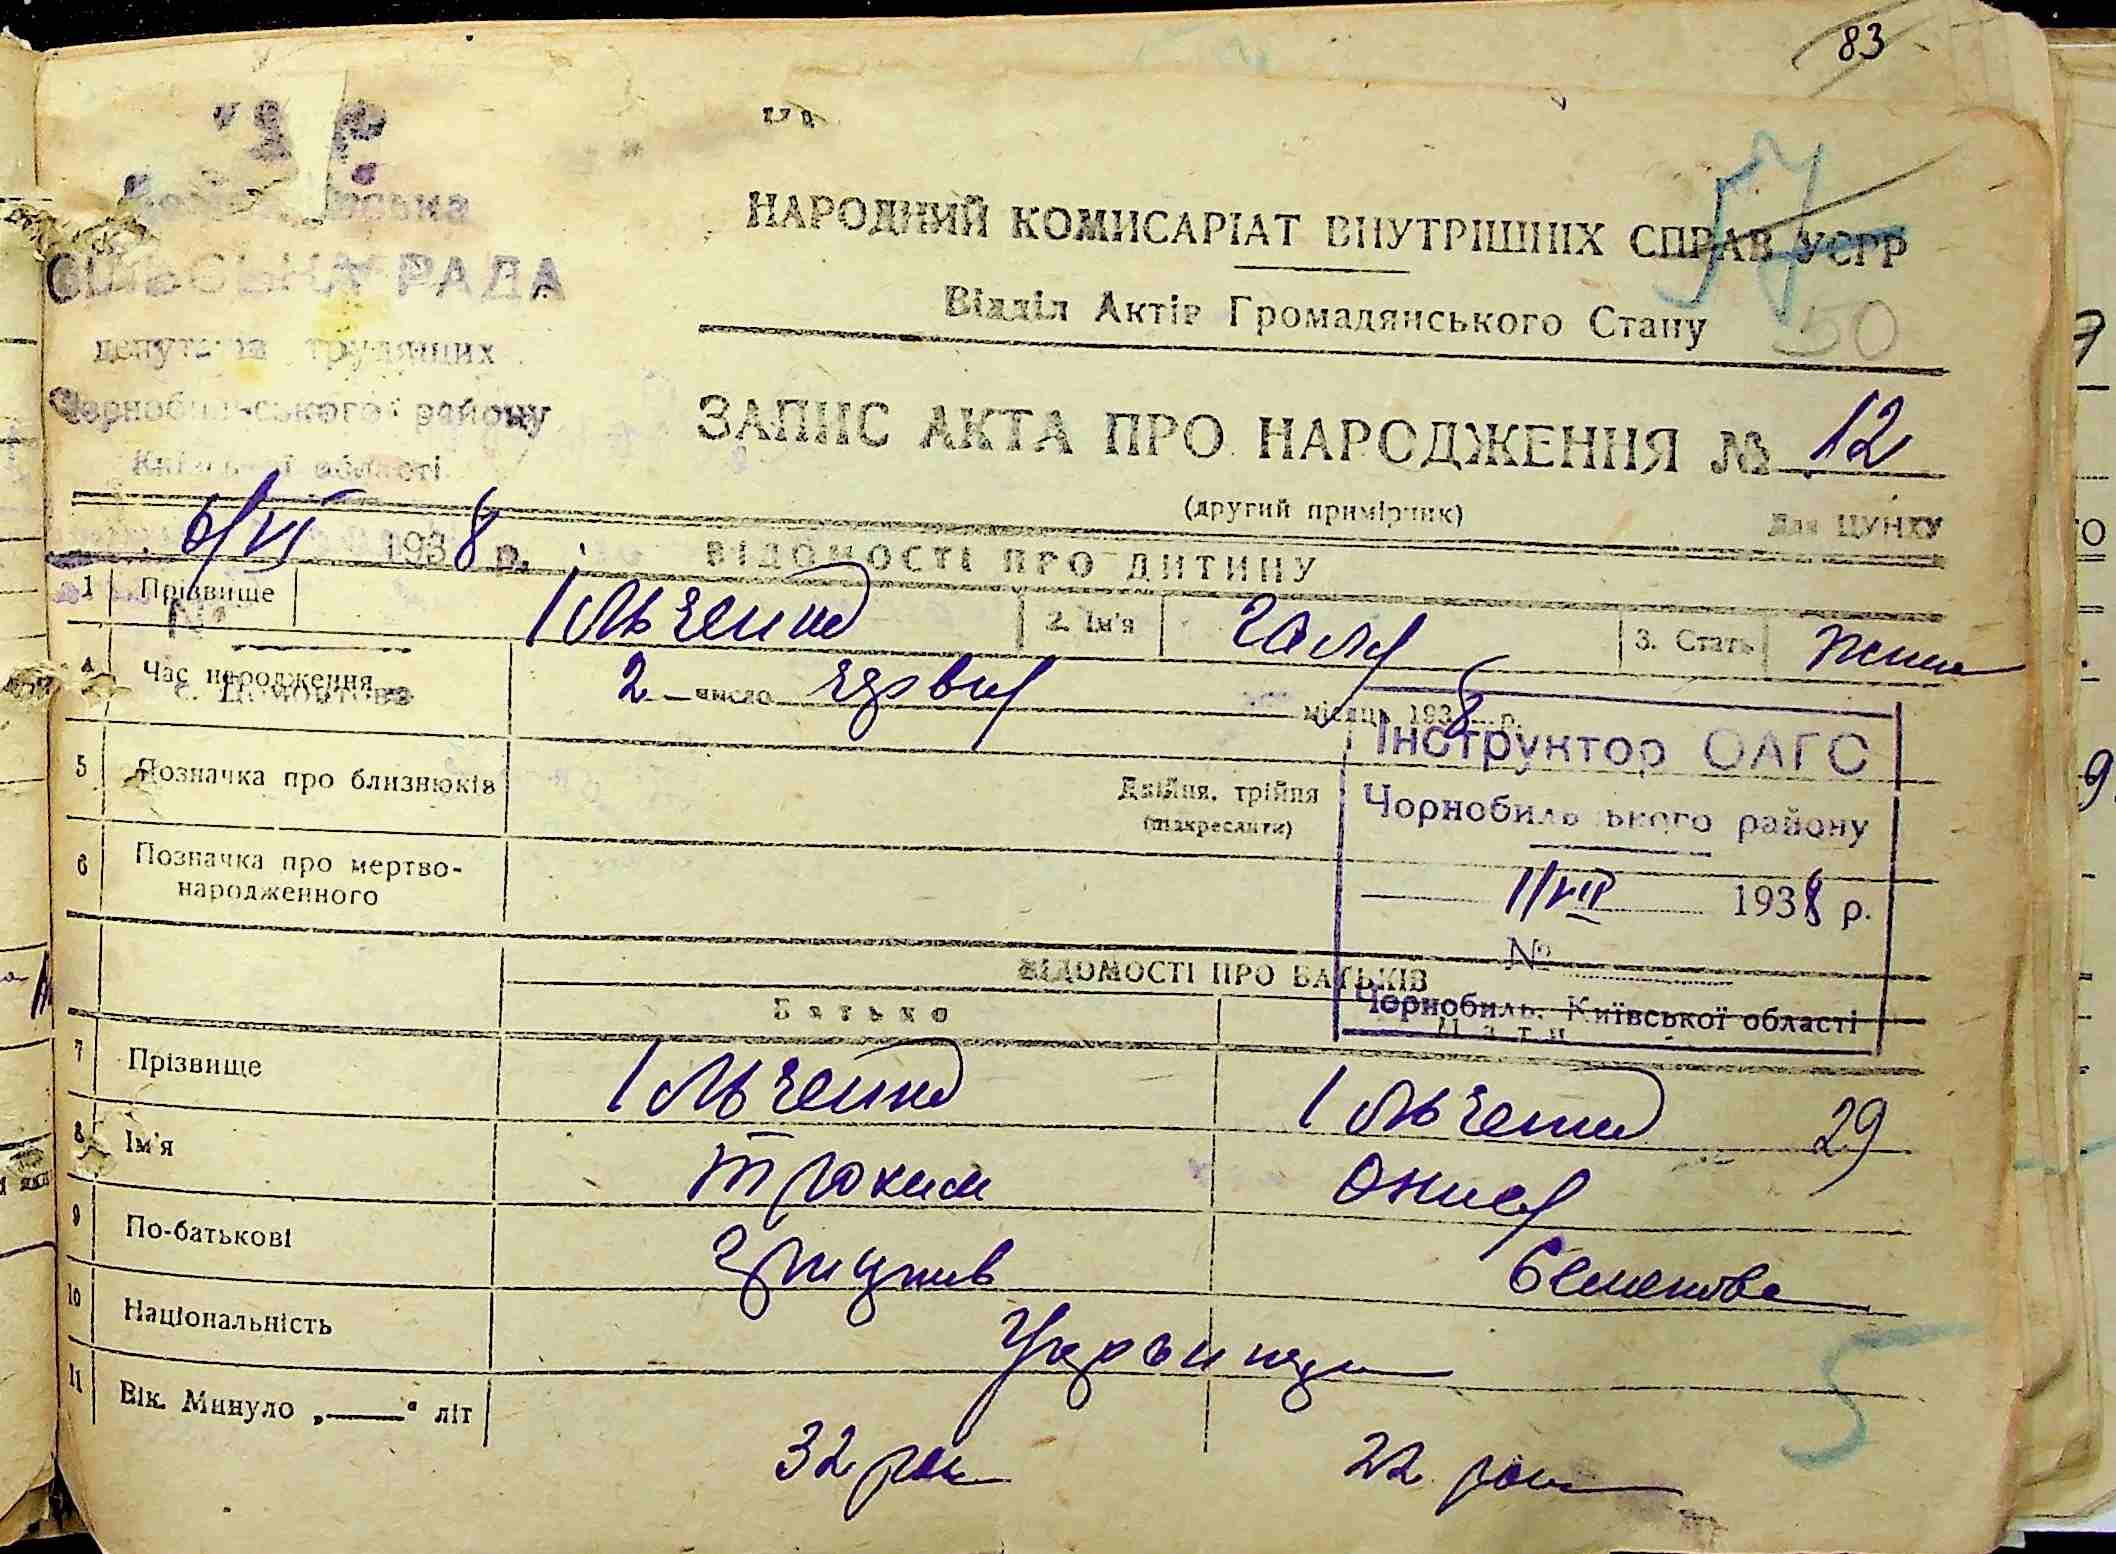 83
57
50
СІЛЬСЬКА РАДА
депутатів трудящих
Чорнобильського району
Київської області
6/VI 1938 р.
№
НАРОДНИЙ КОМИСАРІАТ ВНУТРІШНІХ СПРАВ УСРР
Відділ Актів Громадянського Стану
ЗАПИС АКТА ПРО НАРОДЖЕННЯ № 12
(другий примірник)
Для ЦУНХУ
ВІДОМОСТІ ПРО ДИТИНУ
1 Прізвище Ільченко 2. Ім'я Галя 3. Стать
4 Час народження 2 число місяць 1938 р.
5 Позначка про близнюків Двійня, трійня
(підкреслити)
6 Позначка про мертво-
народженного
Інструктор ОАГС
Чорнобильського району
11/VII 1938 р.
№
Чорнобиль, Київської області
ВІДОМОСТІ ПРО БАТЬКІВ
Батько Мати
7 Прізвище Ільченко Ільченко 29
8 Ім'я Трохим Онися
9 По-батькові Семенова
10 Національність Українци
11 Вік. Минуло „——“ літ 32 рок 22 рок
5